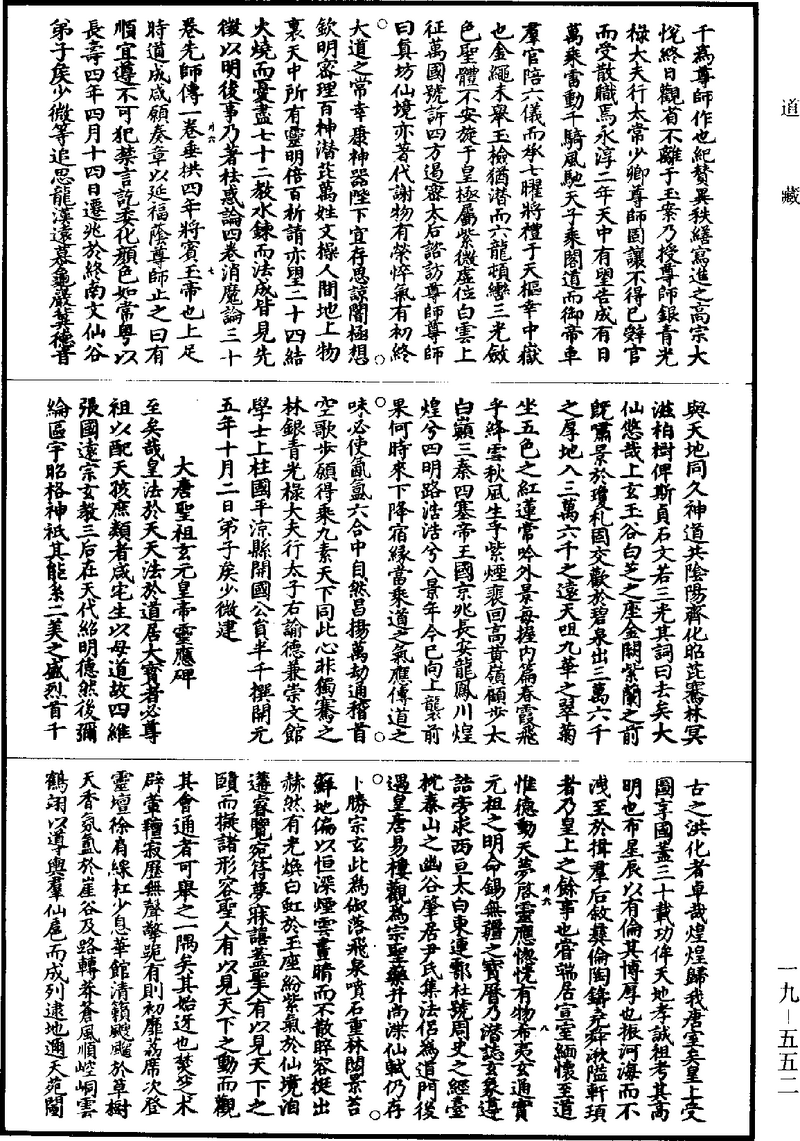 道藏
千爲尊師作也紀贊異秩繕寫進之高宗大
恱終日觀省不離于玉案乃授尊師銀青光
祿大夫行太常少卿尊師固讓不得已辭官
而受散職焉永淳二年天中有盟告成有日
萬乘雷動千騎風馳天子乘閣道而御帝車
羣官陪六儀而承七曜將禮于天樞幸中嶽
也金繩未舉玉檢猶潜而六龍頓轡三光斂
色聖體不安旋于皇極屬紫微虛位白雲上
征萬國號訴四方遏密太后諮訪尊師尊師
曰真坊仙境亦著代謝物有榮悴氣有初終
大道之常幸康神器陛下宜存思諒闇極想
欽明密理百神潜毗萬姓文操人間地上物
裏天中所有靈明倍百祈請亦盟二十四結
火燒而臺盡七十二教水鍊而法成皆見先
徵以明後事乃著祛惑論四卷消魔論三十
卷先師傳一卷垂拱四年將賓玉帝也上足
時道成咸願奏章以延福蔭尊師止之曰有
順宜遵不可犯禁言訖委化顏色如常粵以
長壽四年四月十四日遷兆於終南文仙谷
弟子侯少微等追思龍漢遠慕龜巖冀德音
與天地同久神道共陰陽齊化昭毗騫林冥
滋柏樹俾斯貞石文若三光其詞曰去矣大
仙愍哉上玄玉谷白芝之座金闕紫蘭之前
旣嘯景於瓊札固交歡於碧泉出三萬六千
之厚地入三萬六千之遠天咀九華之翠菊
坐五色之紅蓮常吟外景每握内篇春霞飛
乎絳雲秋風生乎紫煙裴回高黄嶺顧步太
白巓三秦四塞帝王國京兆長安龍鳳川煌
煌兮四明路浩浩兮八景年今已向上襲前
果何時來下降宿緣當乘道之氣應傳道之
味必使氤氲六合中自然昌揚萬劫通稽首
空歌步願得乘九素天下同此心非獨騫之
林銀青光祿大夫行太子右諭德兼崇文館
學士上柱國平涼縣開國公貟半千撰開元
五年十月二日弟子侯少微建
大唐聖祖玄元皇帝靈應碑
至矣哉皇法於天天法於道居大寳者必尊
祖以配天孩庶類者咸宅生以母道故四維
張國遠宗玄教三后在天代紹明德然後彌
綸區宇昭格神祇其能系二美之盛烈首千
古之洪化者卓哉煌煌歸我唐室矣皇上受
圖享國蓋三十載功侔天地孝誠祖考其高
明也布星辰以有倫其博厚也振河海而不
洩至於揖羣后敘彝倫陶鑄堯舜湫隘軒頊
者乃皇上之餘事也嘗端居宣室緬懷至道
惟德動天夢啓靈應惚恍有物希夷玄通實
元祖之明命錫無疆之寶曆乃潜誌玄象遵
誥旁求西亘太白東連鄠杜號周史之經臺
枕秦山之幽谷肇居尹氏集法侣爲道門後
遇皇唐易樓觀爲宗聖藥井高深仙軾仍存
卜勝宗玄此爲俶落飛泉噴石重林閟景苔
蘚地偏以恒深煙雲晝晴而不散睟容挺出
赫然有光煥白虹於玉座紛紫氣於仙境洎
遵睿覽宛符夢寐議蓋聖人有以見天下之
賾而擬諸形容聖人有以見天下之動而觀
其會通者可舉之一隅矣其始迓也焚瘞朮
辟葷羶寂歷無聲警蹕有則初靡茘席次登
靈壇徐肩線杠少息華館清籟颼飀於草樹
天香氛氲於崖谷及路轉莽蒼風順崆峒雲
鶴翊以導輿羣仙扈而成列逮地邇天苑閶
一九—五五二